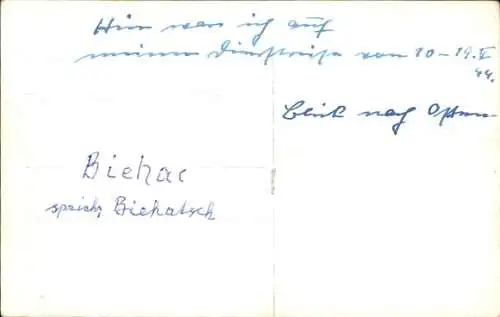 Hier war ich auf
meiner Dienstreise vom 10-19.V
44.
Blick nach Osten
Biehac
sprich, Biehatsch